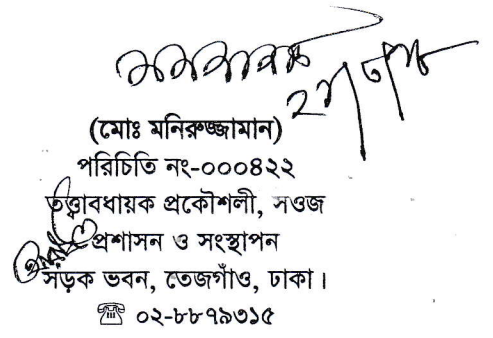 (মোঃ মনিরুজ্জামান)
পরিচিতি নং-০০০৪২২
তত্ত্বাবধায়ক প্রকৌশলী, সওজ
প্রশাসন ও সংস্থাপন
সড়ক ভবন, তেজগাঁও, ঢাকা।
☎ ০২-৮৮৭৯৩১৫